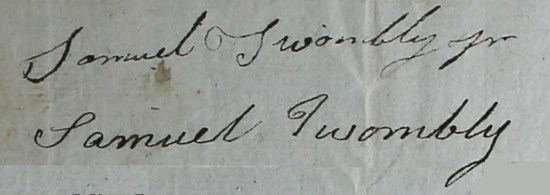 Samuel Twombly jr
Samuel Twombly